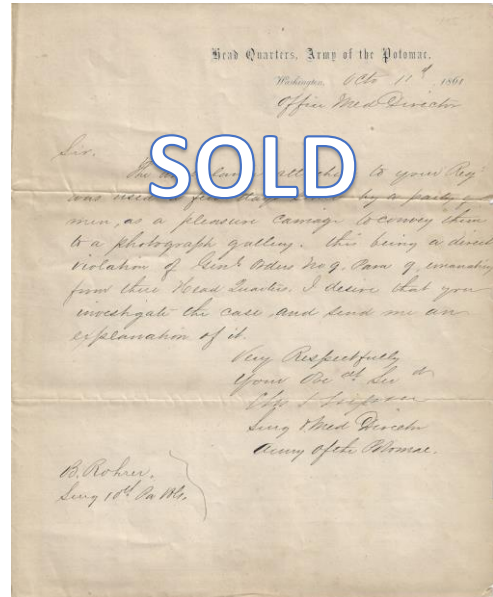 Head Quarters, Army of the Potomac.
Washington, Octo 11th 1861
Office Med Director
Sir.
The attached to your Reg
was used a few by a party of
men, as a pleasure carriage to convey them
to a photograph gallery. this being a direct
violation of Genl Orders No 9. Para 9. emanating
from these Head Quarters. I desire that you
investigate the case, and send me an
explanation of it.
Very Respectfully
Your Obt Servt
Surg & Med Director
Army of the Potomac.
B. Rohrer.
Surg 10th Pa
SOLD